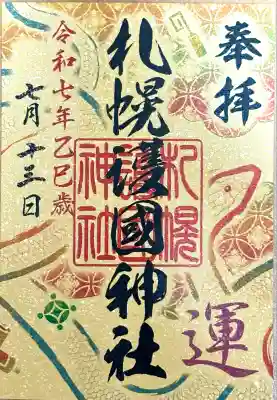 奉拝
札幌護國神社
札幌
神社
令和七年乙巳歳
七月十三日
運